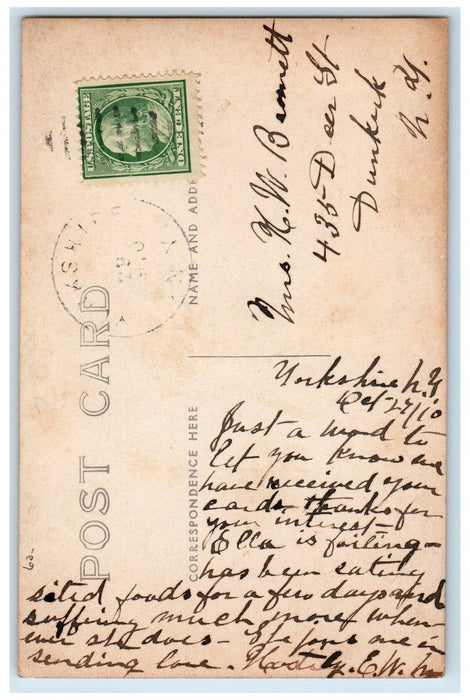 U.S.POSTAGE
ONE CENT
ASHF
N.Y.
POST CARD
NAME AND ADDRE
CORRESPONDENCE HERE
Mrs. H. W. Bennett
435 Deer St
Dunkirk
N. Y.
Yorkshire N.Y
Oct 27/10
Just a word to
let you know we
have received your
cards. thanks for
your interest-
Ella is failing-
has been eating
solid foods for a few days and
suffering much more when-
ever she does- She joins me in
sending love. Hastily. E. W.